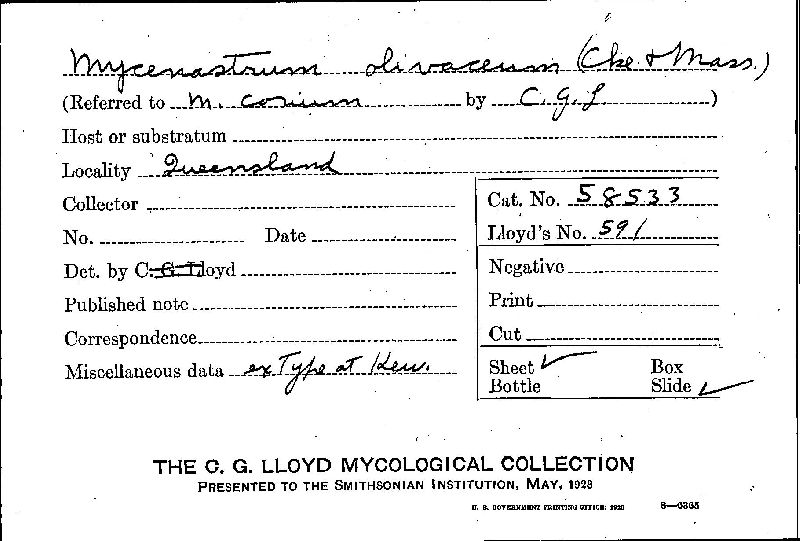 Mycenastrum olivaceum (Cke. & Mass.)
(Referred to M. corium by C. G. L. )
Host or substratum
Locality Queensland
Collector
Cat. No. 58533
No. Date
Lloyd's No. 591
Det. by C. G. Lloyd
Negative
Published note
Print
Correspondence
Cut
Miscellaneous data ex Type at Kew.
Sheet ✓ Box
Bottle Slide ✓
THE C. G. LLOYD MYCOLOGICAL COLLECTION
PRESENTED TO THE SMITHSONIAN INSTITUTION, MAY, 1928
U. S. GOVERNMENT PRINTING OFFICE: 1928 8—6365